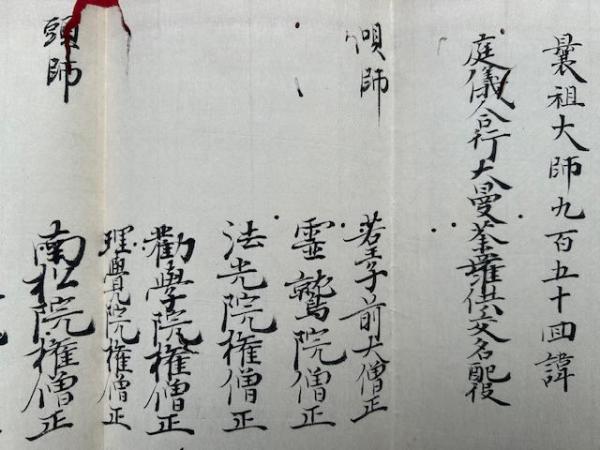 曩祖大師九百五十回諱
庭儀合行大曼荼羅供交名配役
唄師
若王子前大僧正
霊鷲院僧正
法光院権僧正
勸學院権僧正
理覺院権僧正
頭師
南松院権僧正